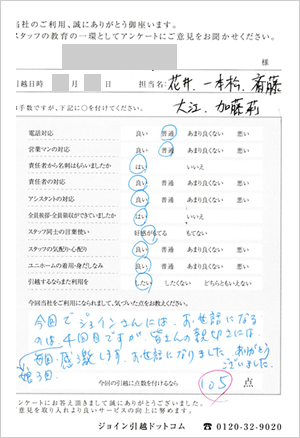 当社のご利用、誠にありがとう御座います。
スタッフの教育の一環としてアンケートにご意見をお聞かせください。
様
引越日時 月 日 担当名: 花井、一本松、斎藤
大江、加藤莉
お手数ですが、下記に○を付けてください。
電話対応 良い 普通 あまり良くない 悪い
営業マンの対応 良い 普通 あまり良くない 悪い
責任者から名刺はもらいましたか はい いいえ
責任者の対応 良い 普通 あまり良くない 悪い
アシスタントの対応 良い 普通 あまり良くない 悪い
全員挨拶・全員最収ができていましたか はい いいえ
スタッフ同士の言葉使い 好感がもてる もてない
スタッフの気配り・心配り 良い 普通 あまり良くない 悪い
ユニホームの着用・身だしなみ 良い 普通 あまり良くない 悪い
引越するならまた利用を したい したくない どちらともいえない
今回当社をご利用になられまして、気づいた点をお教えください。
今回でジョインさんには、お世話になる
のは、4回目ですが、皆さんの親切さには、
毎回、感激します。お世話になりました。ありがとう
ございました。
今回の引越に点数を付けるなら 105 点
アンケートにお答え頂きまして誠にありがとうございました。
ご意見を取り入れより良いサービスの向上に努めます。
ジョイン引越ドットコム ☎ 0120-32-9020